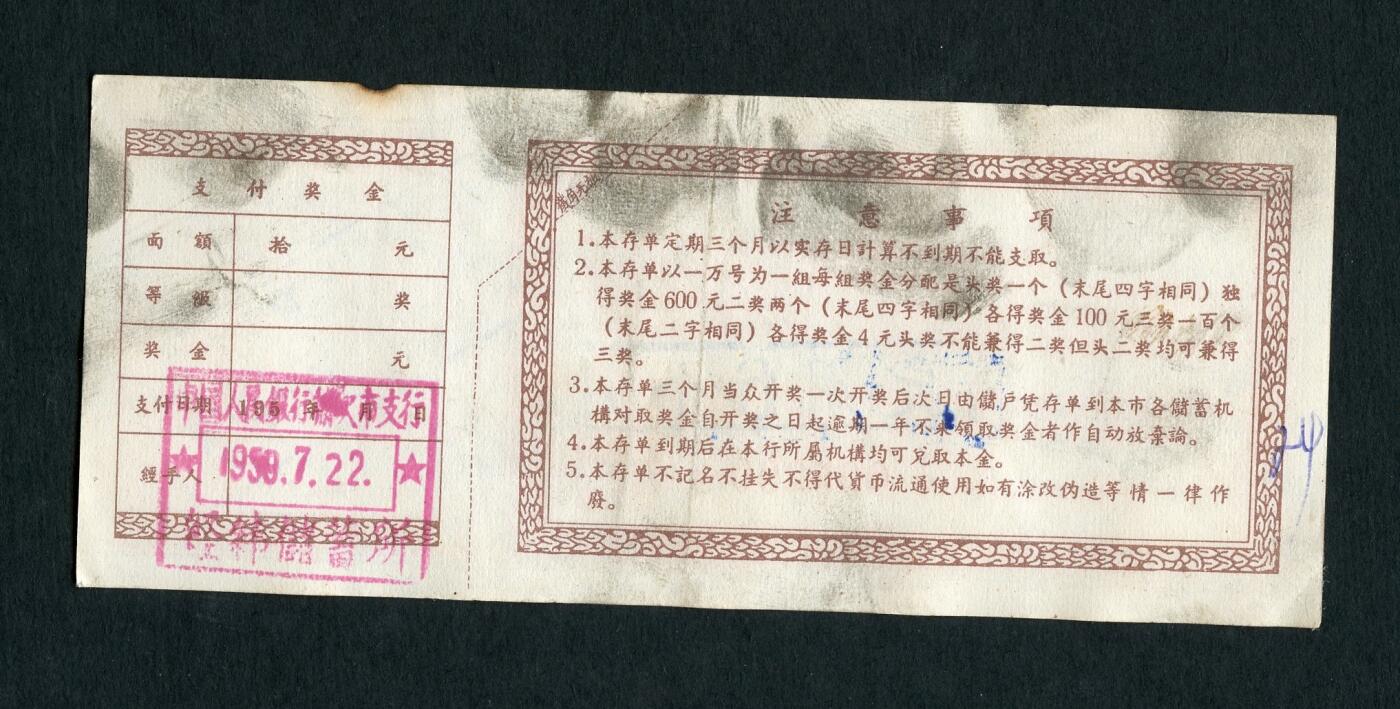 支付奖金
面額 拾 元
等級 奖
奖金 元
支付日期 195 年 月 日
經手人
人民銀行
市支行
★1959.7.22.★
經緯儲蓄所
注意事項
1.本存单定期三个月以实存日計算不到期不能支取。
2.本存单以一万号为一組每組奖金分配是头奖一个（末尾四字相同）独
得奖金600元二奖两个（末尾四字相同）各得奖金100元三奖一百个
（末尾二字相同）各得奖金4元头奖不能兼得二奖但头二奖均可兼得
三奖。
3.本存单三个月当众开奖一次开奖后次日由儲户凭存单到本市各儲蓄机
構对取奖金自开奖之日起逾期一年不来領取奖金者作自动放棄論。
4.本存单到期后在本行所属机構均可兑取本金。
5.本存单不記名不挂失不得代貨币流通使用如有涂改伪造等情一律作
廢。